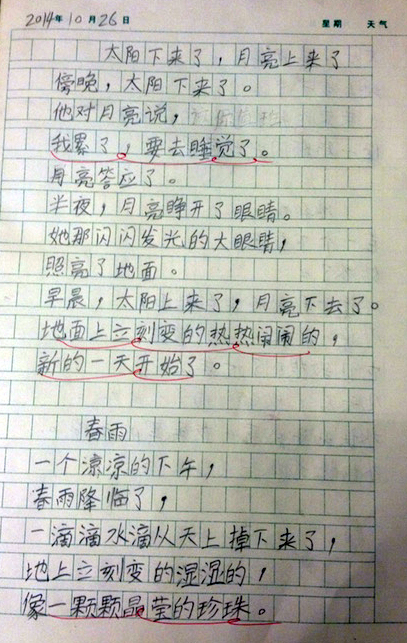 2014年10月26日 星期 天气
太阳下来了，月亮上来了
傍晚，太阳下来了。
他对月亮说，
我累了，要去睡觉了。
月亮答应了。
半夜，月亮睁开了眼睛。
她那闪闪发光的大眼睛，
照亮了地面。
早晨，太阳上来了，月亮下去了。
地面上立刻变的热热闹闹的，
新的一天开始了。
春雨
一个凉凉的下午，
春雨降临了，
一滴滴水滴从天上掉下来了，
地上立刻变的湿湿的，
像一颗颗晶莹的珍珠。